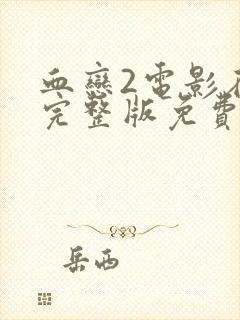 血戀2電影在
完整版免費
岳西